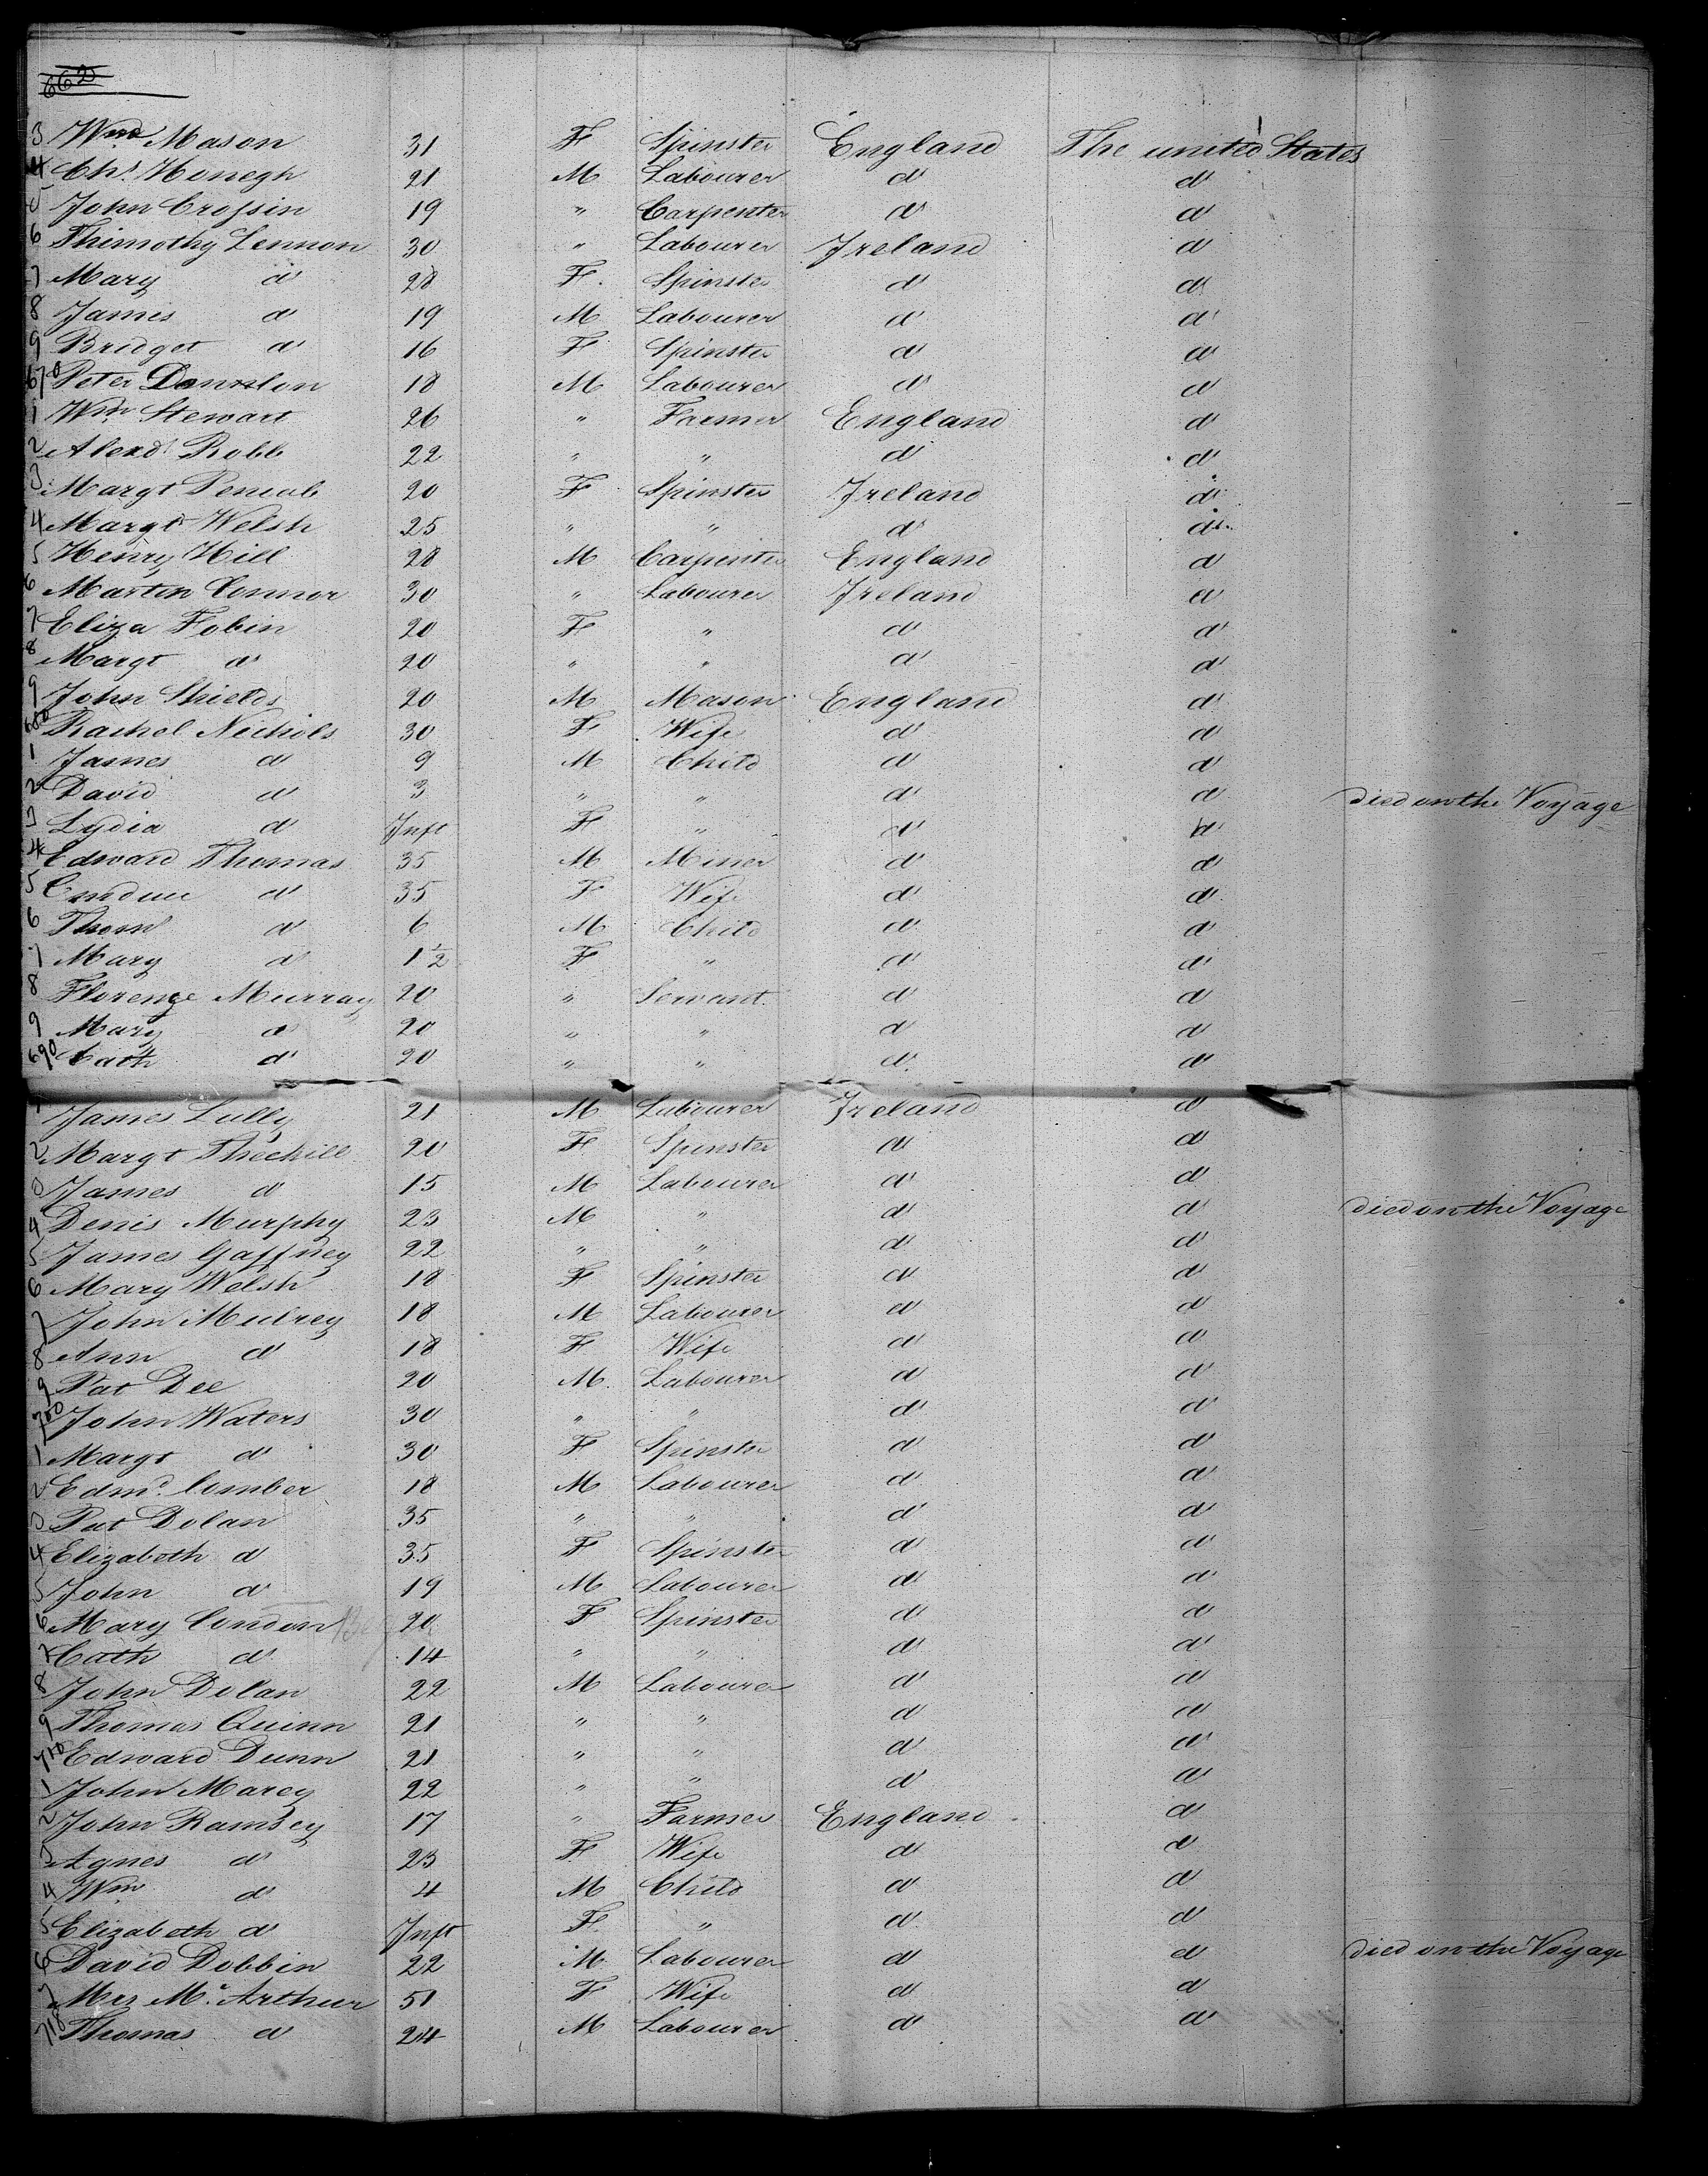 662
3 Wm Mason 31 F Spinster England The united States
4 Chs. Honegh 21 M Labourer do do
5 John Crossin 19 " Carpenter do do
6 Thimothy Lennon 30 " Labourer Ireland do
7 Mary do 28 F Spinster do do
8 James do 19 M Labourer do do
9 Bridget do 16 F Spinster do do
670 Peter 18 M Labourer do do
1 Wm Stewart 26 " Farmer England do
2 Alexd Robb 22 " " do do
3 Margt 20 F Spinster Ireland do
4 Margt Welsh 25 " " do do
5 Henry Hill 28 M Carpenter England do
6 Martin Connor 30 " Labourer Ireland do
7 Eliza Fobin 20 F " do do
8 Margt do 20 " " do do
9 John Shields 20 M Mason England do
680 Rachel Nichols 30 F Wife do do
1 James do 9 M Child do do
2 David do 3 " " do do died on the Voyage
3 Lydia do Inft F " do do
4 Edward Thomas 35 M Miner do do
5 do 35 F Wife do do
6 Thom do 6 M Child do do
7 Mary do 1½ F " do do
8 Florence Murray 20 " Servant do do
9 Mary do 20 " " do do
690 Cath do 20 " " do do
1 James Lully 21 M Labourer Ireland do
2 Margt Thechill 20 F Spinster do do
3 James do 15 M Labourer do do
4 Denis Murphy 23 M " do do died on the Voyage
5 James Gaffney 22 " " do do
6 Mary Welsh 18 F Spinster do do
7 John Mulrey 18 M Labourer do do
8 Ann do 18 F Wife do do
9 Pat Dee 20 M Labourer do do
700 John Waters 30 " " do do
1 Margt do 30 F Spinster do do
2 Edmd. Comber 18 M Labourer do do
3 Pat Dolan 35 " " do do
4 Elizabeth do 35 F Spinster do do
5 John do 19 M Labourer do do
6 Mary Condon 20 F Spinster do do
7 Cath do 14 " " do do
8 John Dolan 22 M Labourer do do
9 Thomas Quinn 21 " " do do
710 Edward Dunn 21 " " do do
1 John Marcy 22 " " do do
2 John Ramsey 17 " Farmer England do
3 Agnes do 23 F Wife do do
4 Wm do 4 M Child do do
5 Elizabeth do Inft F " do do
6 David Dobbin 22 M Labourer do do died on the Voyage
7 Mrs Mc Arthur 51 F Wife do do
718 Thomas do 24 M Labourer do do